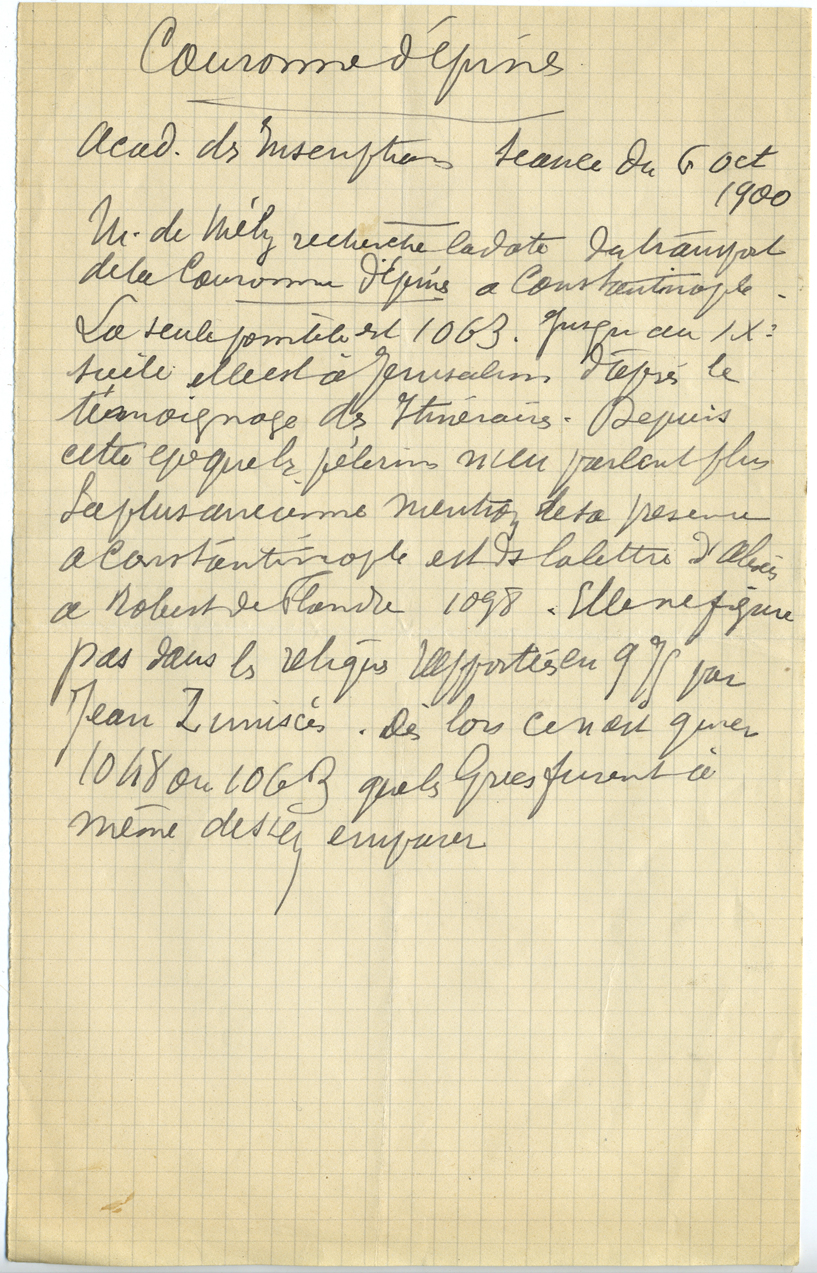 Couronne d'épines
Acad. des Inscriptions Séance du 6 oct
1900
M. de Mély recherche la date du transport
de la Couronne d'épines a Constantinople.
La seule possible est 1063. Jusqu'au IXe
siècle elle est à Jérusalem d'après le
témoignage des Itinéraires. Depuis
cette époque les pélerins n'en parlent plus
La plus ancienne mention de sa présence
a Constantinople est ds la lettre d'Alexis
a Robert de Flandre 1098. Elle ne figure
pas dans les reliques rapportées en 975 par
Jean Zimiscès. Dès lors ce n'est qu'en
1048 ou 1063 que les Grecs furent à
même de s'en emparer